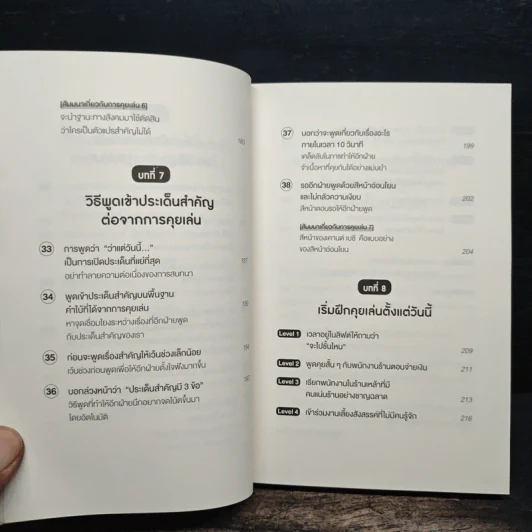 [สัมมนาเกี่ยวกับการคุยเล่น 6]
จะนำฐานะทางสังคมมาใช้ตัดสิน
ว่าใครเป็นตัวแปรสำคัญไม่ได้
บทที่ 7
วิธีพูดเข้าประเด็นสำคัญ
ต่อจากการคุยเล่น
33 การพูดว่า “ว่าแต่วันนี้...”
เป็นการเปิดประเด็นที่แย่ที่สุด
อย่าทำลายความต่อเนื่องของการสนทนา
34 พูดเข้าประเด็นสำคัญบนพื้นฐาน
คำใบ้ที่ได้จากการคุยเล่น
หาจุดเชื่อมโยงระหว่างเรื่องที่อีกฝ่ายพูด
กับประเด็นสำคัญของเรา
35 ก่อนจะพูดเรื่องสำคัญให้เว้นช่วงเล็กน้อย
เว้นช่วงก่อนพูดเพื่อให้อีกฝ่ายตั้งใจฟังมากขึ้น
36 บอกล่วงหน้าว่า “ประเด็นสำคัญมี 3 ข้อ”
วิธีพูดที่ทำให้อีกฝ่ายนึกอยากจดโน้ตขึ้นมา
โดยอัตโนมัติ
37 บอกว่าจะพูดเกี่ยวกับเรื่องอะไร
ภายในเวลา 10 วินาที 199
เคล็ดลับในการทำให้อีกฝ่าย
จำเนื้อหาที่คุยกันได้อย่างแม่นยำ
38 รออีกฝ่ายพูดด้วยสีหน้าอ่อนโยน
และไม่กลัวความเงียบ 202
สีหน้าตอนรอให้อีกฝ่ายพูด
[สัมมนาเกี่ยวกับการคุยเล่น 7]
สีหน้าของเคานต์ เบซี คือแบบอย่าง
ของสีหน้าอ่อนโยน 204
บทที่ 8
เริ่มฝึกคุยเล่นตั้งแต่วันนี้
Level 1 เวลาอยู่ในลิฟต์ให้ถามว่า
“จะไปชั้นไหน” 209
Level 2 พูดคุยสั้น ๆ กับพนักงานร้านตอนจ่ายเงิน 211
Level 3 เรียกพนักงานในร้านเหล้าที่มี
คนแน่นร้านอย่างชาญฉลาด 213
Level 4 เข้าร่วมงานเลี้ยงสังสรรค์ที่ไม่มีคนรู้จัก 216